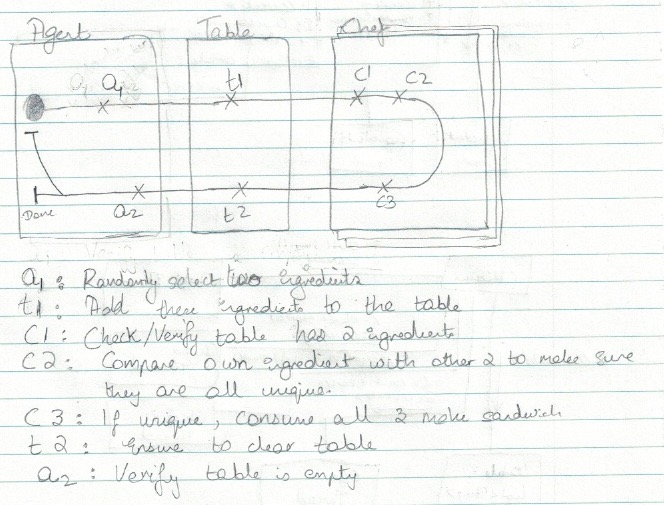 Agent Table Chef
a1 t1 C1 C2
Done a2 t2 C3
a1 : Randomly select two ingredients
t1 : Add these ingredients to the table
C1 : Check/Verify table has 2 ingredients
C2 : Compare own ingredient with other 2 to make sure
they are all unique.
C3 : If unique, consume all 3 make sandwich
t2 : Ensure to clear table
a2 : Verify table is empty